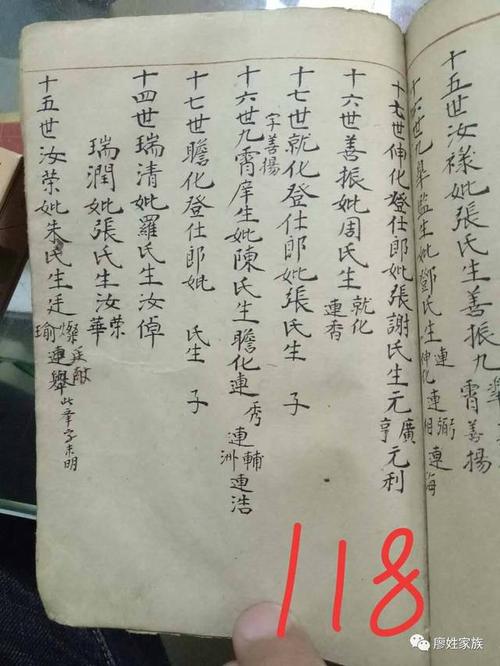 十五世汝𧙗妣張氏生善振九霄善揚
十六世九皋監生妣鄧氏生連弼連海
伸化連相
十七世伸化登仕郎妣張謝氏生元廣元利
亨
十六世善振妣周氏生就化
連香
字善揚
十七世就化登仕郎妣張氏生 子
十六世九霄庠生妣陳氏生瞻化連秀連輔連浩
洲
十七世瞻化登仕郎妣 氏生 子
十四世瑞清妣羅氏生汝倬
瑞潤妣張氏生汝榮
華
十五世汝榮妣朱氏生廷燦廷猷
瑜連舉此章字未明
118
廖姓家族